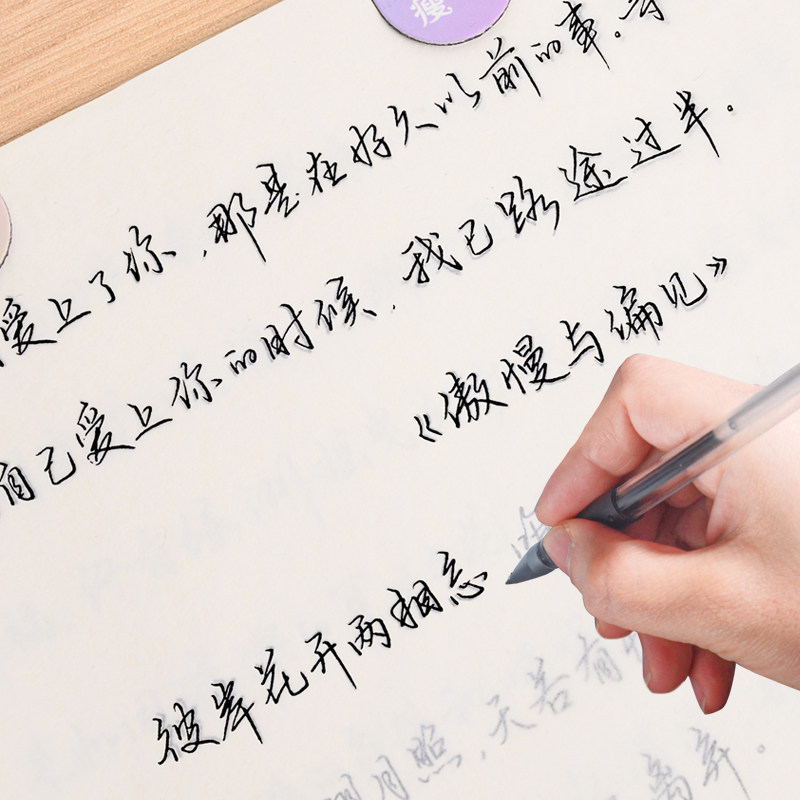 瘦
爱上了你,那是在好久以前的事。等
自己爱上你的时候,我已路途过半。
《傲慢与偏见》
彼岸花开两相忘
明月照,天若有情
离弃。